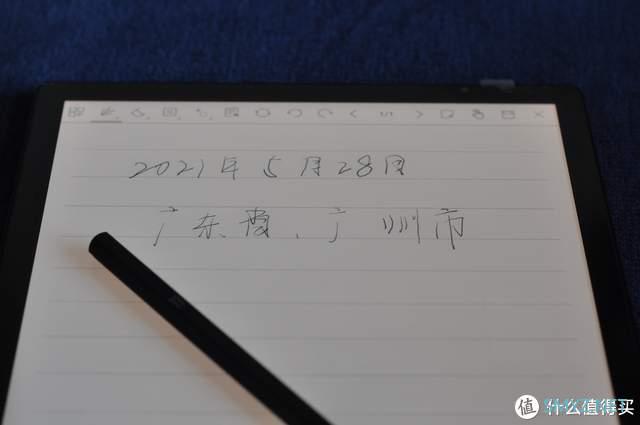 1/1
2021年5月28日
广东省、广州市
值 什么值得买